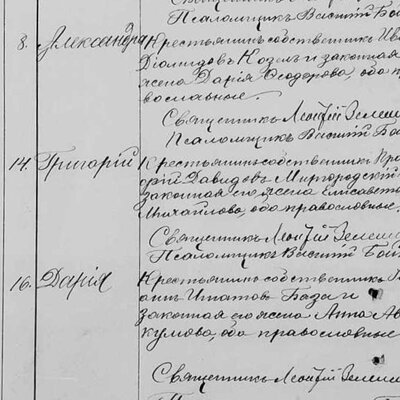 Псаломщикъ Василій Бой
8. Александра Крестьянинъ собственникъ Ив
Діомидовъ Козмъ и законная
жена Дарія Ѳеодорова, оба п
вославные.
Священникъ Леонтій Зелен
Псаломщикъ Василій Бой
14. Григорій Крестьянинъ собственникъ Гри
горій Давидовъ Миргородскій
законная его жена Елисавета
Михайлова, оба православные.
Священникъ Леонтій Зелен
Псаломщикъ Василій Бой
16. Дарія Крестьянинъ собственникъ
Игнатовъ База и
законная его жена Анна Ав
кумова, оба православные
Священникъ Леонтій Зелен